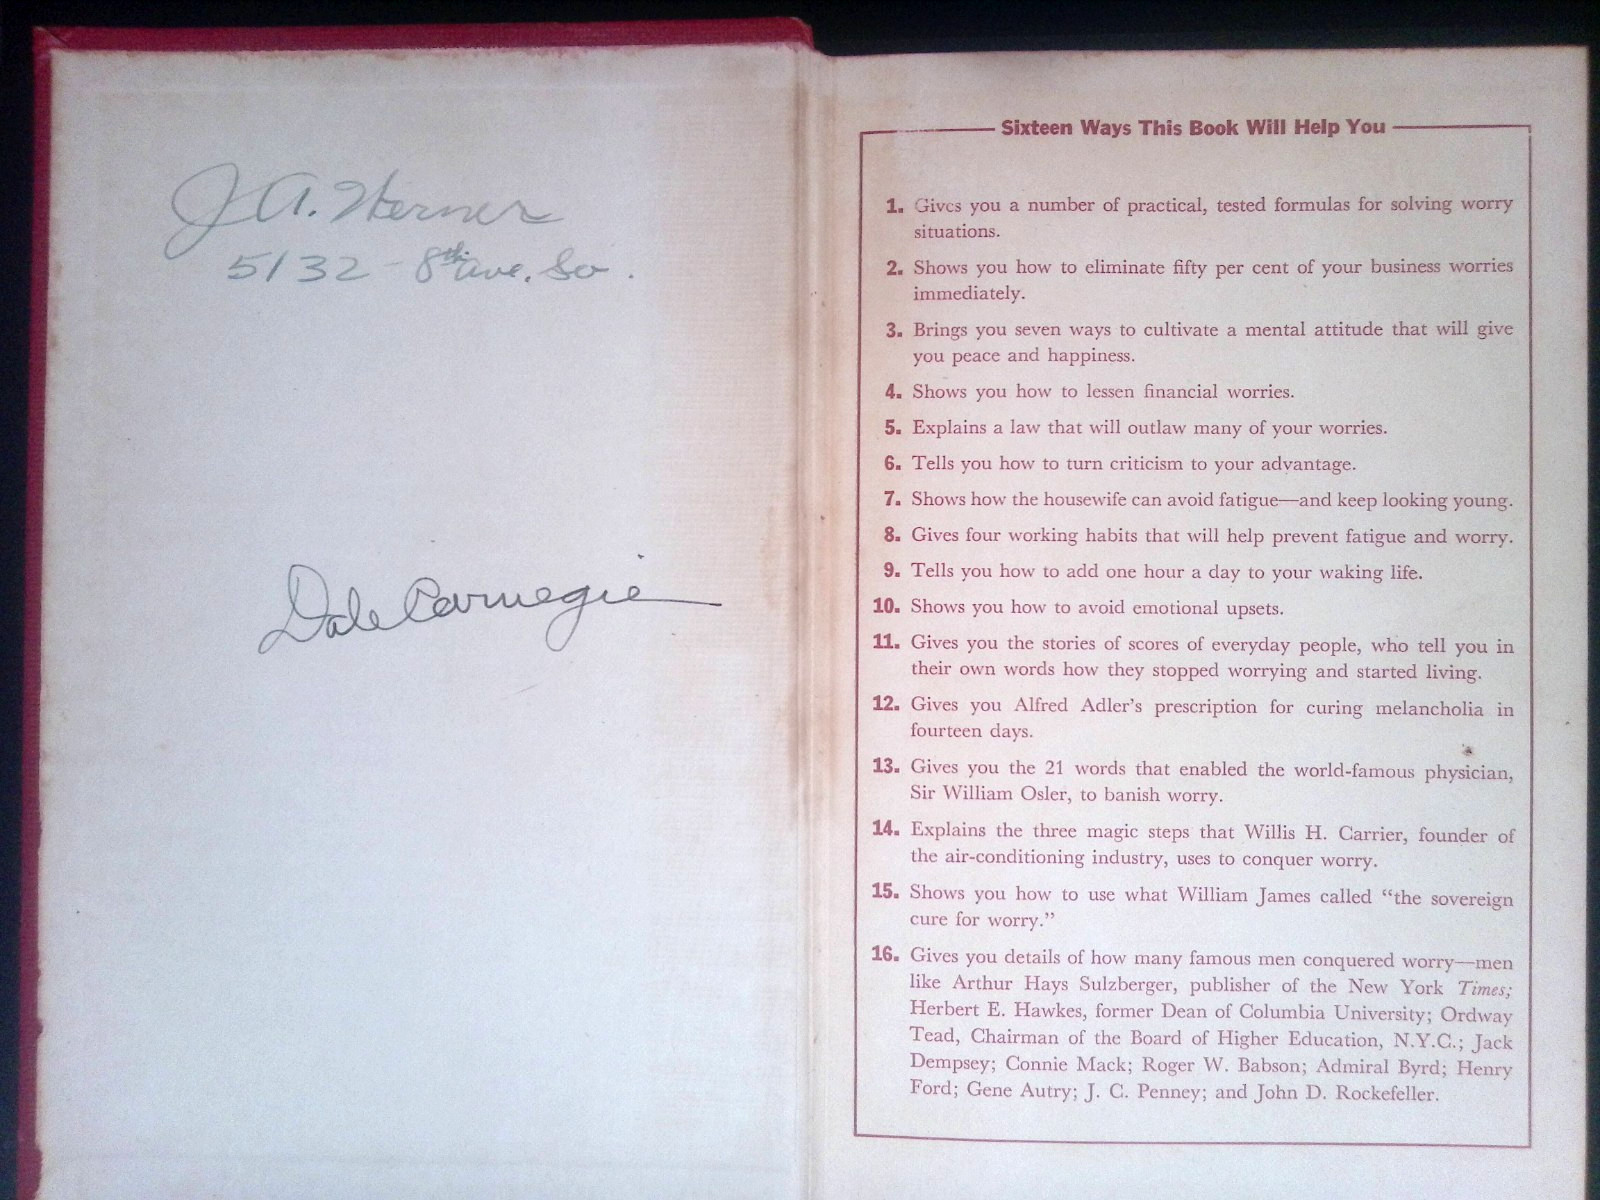 J. A. Werner
5132 - 8th Ave. So.
Dale Carnegie
Sixteen Ways This Book Will Help You
1. Gives you a number of practical, tested formulas for solving worry
situations.
2. Shows you how to eliminate fifty per cent of your business worries
immediately.
3. Brings you seven ways to cultivate a mental attitude that will give
you peace and happiness.
4. Shows you how to lessen financial worries.
5. Explains a law that will outlaw many of your worries.
6. Tells you how to turn criticism to your advantage.
7. Shows how the housewife can avoid fatigue—and keep looking young.
8. Gives four working habits that will help prevent fatigue and worry.
9. Tells you how to add one hour a day to your waking life.
10. Shows you how to avoid emotional upsets.
11. Gives you the stories of scores of everyday people, who tell you in
their own words how they stopped worrying and started living.
12. Gives you Alfred Adler's prescription for curing melancholia in
fourteen days.
13. Gives you the 21 words that enabled the world-famous physician,
Sir William Osler, to banish worry.
14. Explains the three magic steps that Willis H. Carrier, founder of
the air-conditioning industry, uses to conquer worry.
15. Shows you how to use what William James called “the sovereign
cure for worry.”
16. Gives you details of how many famous men conquered worry—men
like Arthur Hays Sulzberger, publisher of the New York Times;
Herbert E. Hawkes, former Dean of Columbia University; Ordway
Tead, Chairman of the Board of Higher Education, N.Y.C.; Jack
Dempsey; Connie Mack; Roger W. Babson; Admiral Byrd; Henry
Ford; Gene Autry; J. C. Penney; and John D. Rockefeller.